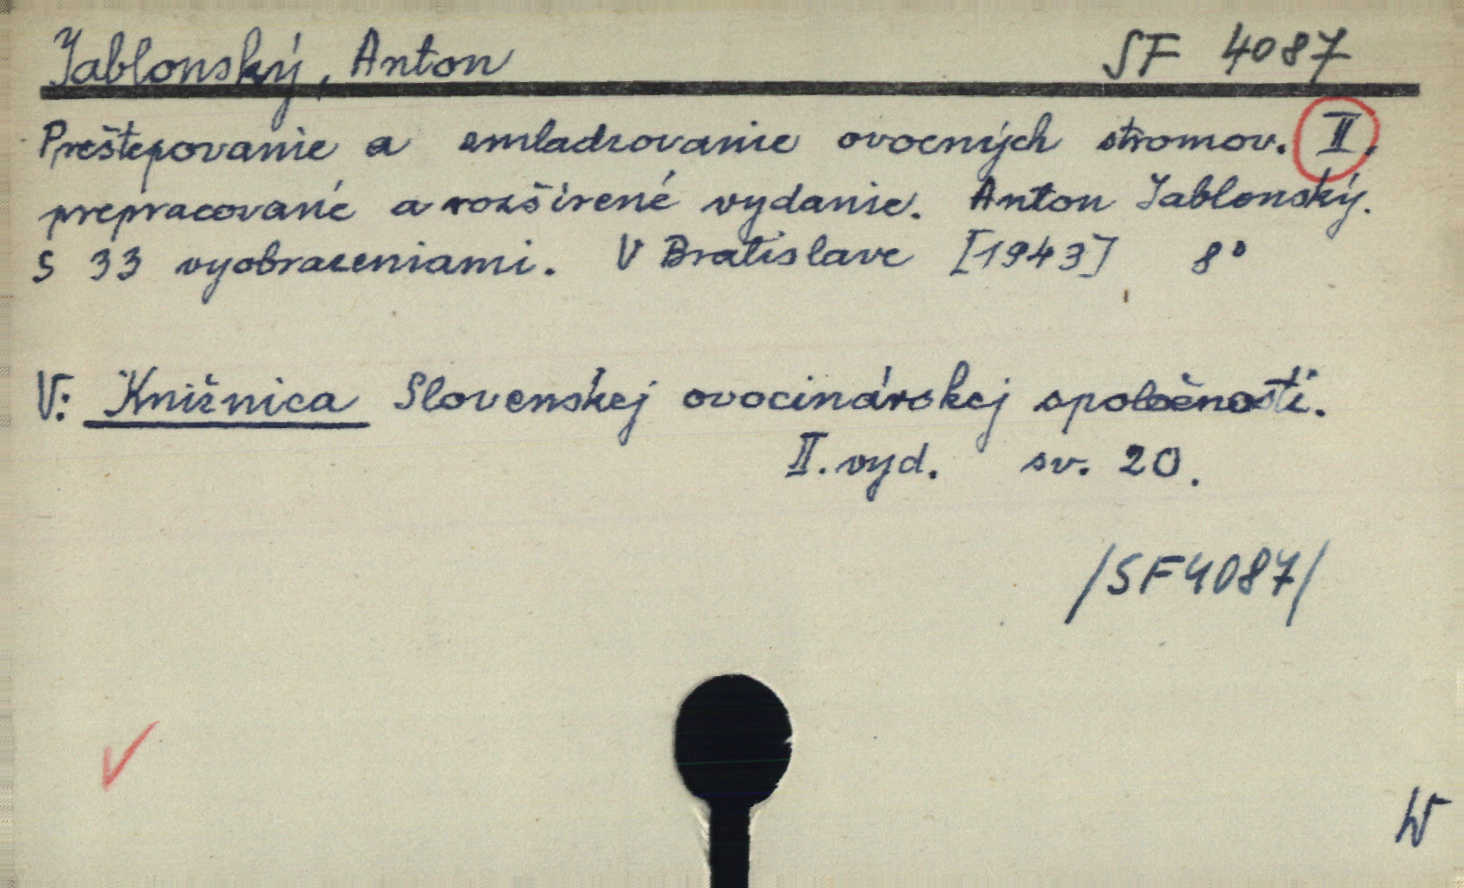 Jablonský, Anton SF 4087
Preštepovanie a zmladzovanie ovocných stromov. II.
prepracované a rozšírené vydanie. Anton Jablonský.
S 33 vyobrazeniami. V Bratislave [1943] 8°
V: Knižnica Slovenskej ovocinárskej spoločnosti.
II. vyd. sv. 20.
/SF4087/
W